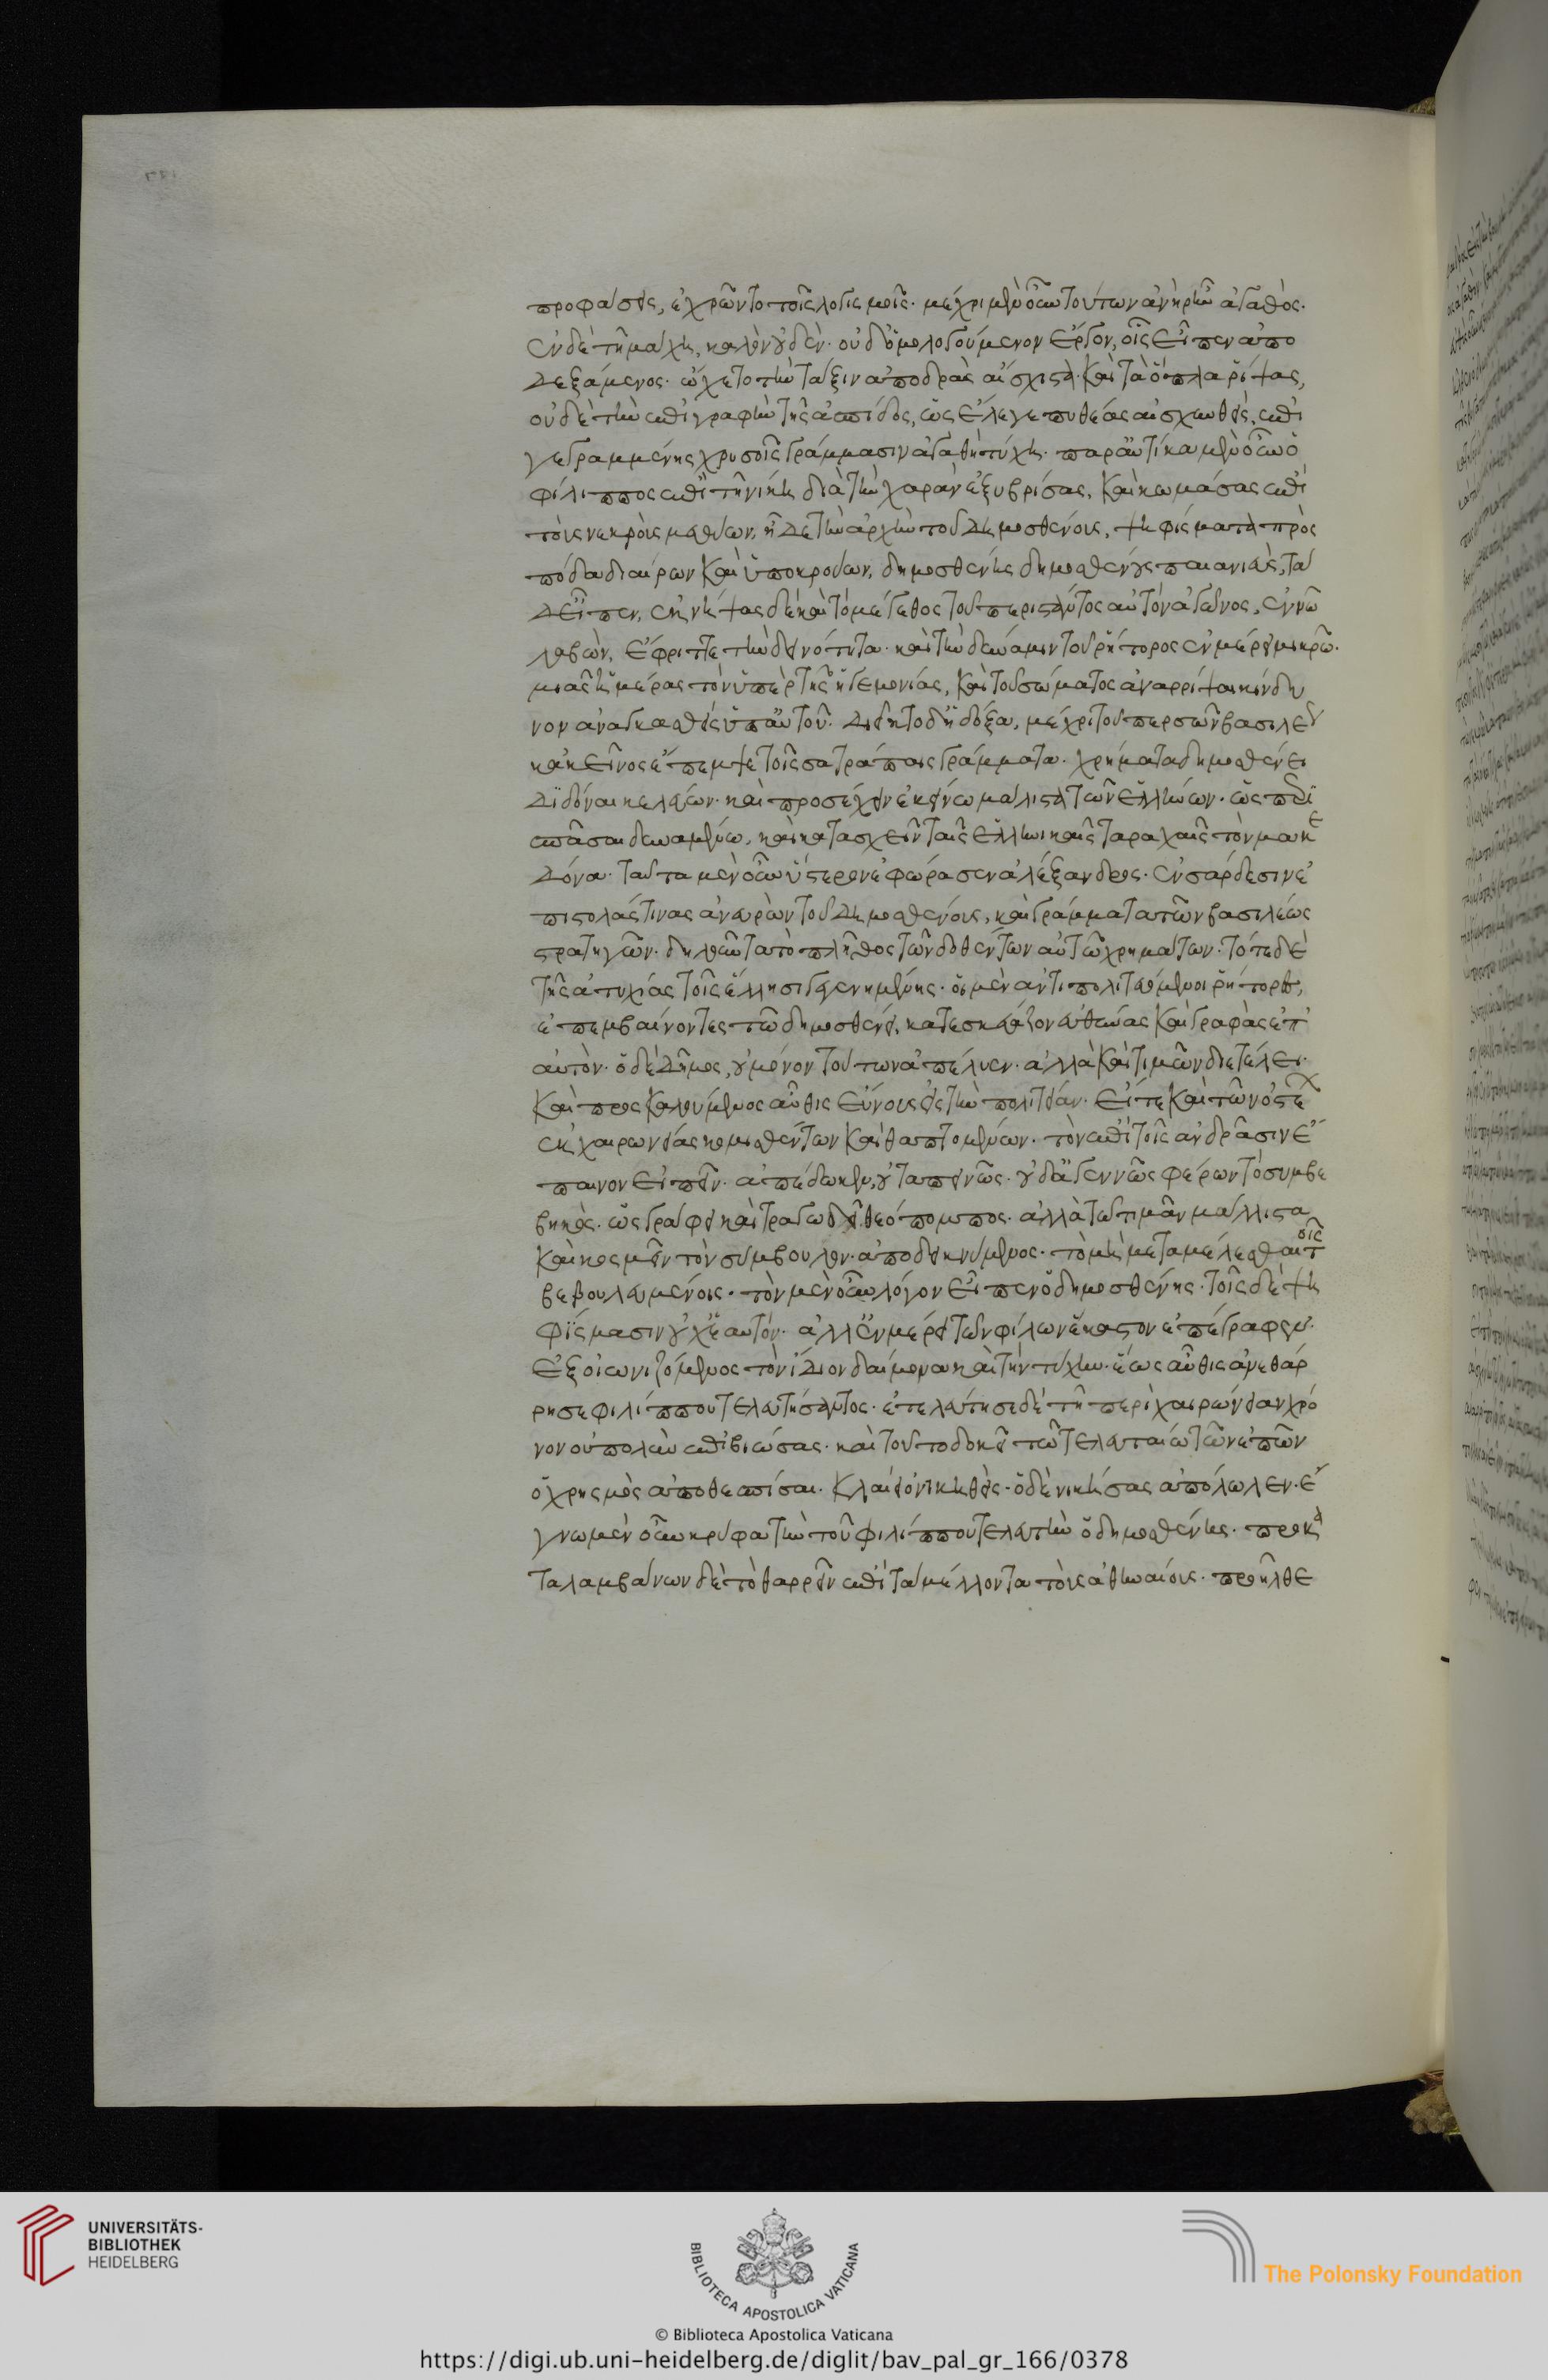 προφάσεις, ἐχρῶντο τοῖς λογισμοῖς. μέχρι μὲν οὖν τούτων ἀνὴρ ἦν ἀγαθός.
ἐν δὲ τῆ μάχη, καλὸν οὐδὲν. οὐδ' ὁμολογούμενον ἔργον, οἷς εἶπεν ἀπο
δεξάμενος. ὤχετο τὴν τάξιν ἀποδρὰς αἴσχιστα. καὶ τὰ ὅπλα ῥίψας,
οὐδὲ τὴν ἐπιγραφὴν τῆς ἀσπίδος, ὡς ἔλεγε πυθέας αἰσχυνθεὶς, ἐπι
γεγραμμένης χρυσοῖς γράμμασιν ἀγαθῆ τύχη. παραυτίκα μὲν οὖν ὁ
φίλιππος ἐπὶ τῆ νίκη διὰ τὴν χαρὰν ἐξυβρίσας, καὶ κωμάσας ἐπὶ
τοὺς νεκροὺς μεθύων, ᾖδε τὴν ἀρχὴν τοῦ δημοσθένους, ψηφίσματος πρὸς
πόδα διαιρων καὶ ὑποκρούων, δημοσθένης δημοσθένους παιανιεὺς, τά
δ' εἶπεν, ἐκνήψας δὲ καὶ τὸ μέγεθος τοῦ περιστάντος αὐτὸν ἀγῶνος, ἐν νῶ
λαβὼν, ἔφριττε τὴν δεινότητα. καὶ τὴν δύναμιν τοῦ ῥήτορος ἐν μέρει μικρῶ.
μιᾶς ἡμέρας τὸν ὑπὲρ τῆς ἡγεμονίας, καὶ τοῦ σώματος ἀναρρῖψαι κίνδυ
νον ἀναγκασθεὶς ὑπ' αὐτοῦ. διϊκτο δ' ἡ δόξα, μέχρι τοῦ περσῶν βασιλέως
κἀκεῖνος ἔπεμψε τοῖς σατράπαις γράμματα. χρήματα δημοσθένει
διδόναι κελεύων. καὶ προσέχειν ἐκείνω μάλιστα τῶν ἑλλήνων. ὡς περι
σπάσαι δυναμένω, καὶ κατασχεῖν ταῖς ἑλληνικαῖς ταραχαῖς τὸν μακε
δόνα. ταῦτα μὲν οὖν ὕστερον ἐφώρασεν ἀλέξανδρος. ἐν σάρδεσιν ἐ
πιστολάς τινας ἀνευρὼν τοῦ δημοσθένους, καὶ γράμματα τῶν βασιλέως
στρατηγῶν. δηλοῦντα τὸ πλῆθος τῶν δοθέντων αὐτῶ χρημάτων. τότε δὲ
τῆς ἀτυχίας τοῖς ἕλλησι γεγενημένης. οἱ μὲν ἀντιπολιτευόμενοι ῥήτορες,
ἐπεμβαίνοντες τῶ δημοσθένει, κατεσκεύαζον εὐθύνας καὶ γραφὰς ἐπ'
αὐτὸν. ὁ δὲ δῆμος, οὐ μόνον τούτων ἀπέλυεν. ἀλλὰ καὶ τιμῶν διετέλει.
καὶ προσκαλούμενος αὖθις εὔνους εἰς τὴν πολιτείαν. εἴτε καὶ τῶν ὀστέων
ἐκ χαιρωνείας κομισθέντων καὶ θαπτομένων. τὸν ἐπὶ τοῖς ἀνδράσιν ἔ
παινον εἰπεῖν. ἀπέδωκεν, οὐ ταπεινῶς. οὐδ' ἀγεννῶς φέρων τὸ συμβε
βηκὸς. ὡς γράφει καὶ τραγωδεῖ θεόπομπος. ἀλλὰ τῶ τιμᾶν μάλιστα
καὶ κοσμεῖν τὸν σύμβουλον. ἀποδεικνύμενος. τὸ μὴ μεταμέλεσθαι τοῖς
βεβουλευμένοις. τὸν μὲν οὖν λόγον εἶπεν ὁ δημοσθένης. τοῖς δὲ ψη
φίσμασιν οὐχ ἑαυτόν. ἀλλ' ἐν μέρει τῶν φίλων ἕκαστον ἐπέγραφεν.
ἐξοιωνιζόμενος τὸν ἴδιον δαίμονα καὶ τὴν τύχην. ἕως αὖθις ἀνεθάρ
ρησε φιλίππου τελευτήσαντος. ἐτελεύτησε δὲ τῆ περὶ χαιρώνειαν χρό
νον οὐ πολὺν ἐπιβιώσας. καὶ τοῦτο δοκεῖ τῶ τελευταίω τῶν ἐπῶν
ὁ χρησμὸς ἀποθεσπίσαι. κλαίει ὁ νικηθεὶς. ὁ δὲ νικήσας ἀπόλωλεν. ἔ
γνω μὲν οὖν κρύφα τὴν τοῦ φιλίππου τελευτὴν ὁ δημοσθένης. προκα
ταλαμβάνων δὲ τὸ θαρρεῖν ἐπὶ τὰ μέλλοντα τοὺς ἀθηναίους. προῆλθε
UNIVERSITÄTS-
BIBLIOTHEK
HEIDELBERG
BIBLIOTECA APOSTOLICA VATICANA
The Polonsky Foundation
© Biblioteca Apostolica Vaticana
https://digi.ub.uni-heidelberg.de/diglit/bav_pal_gr_166/0378